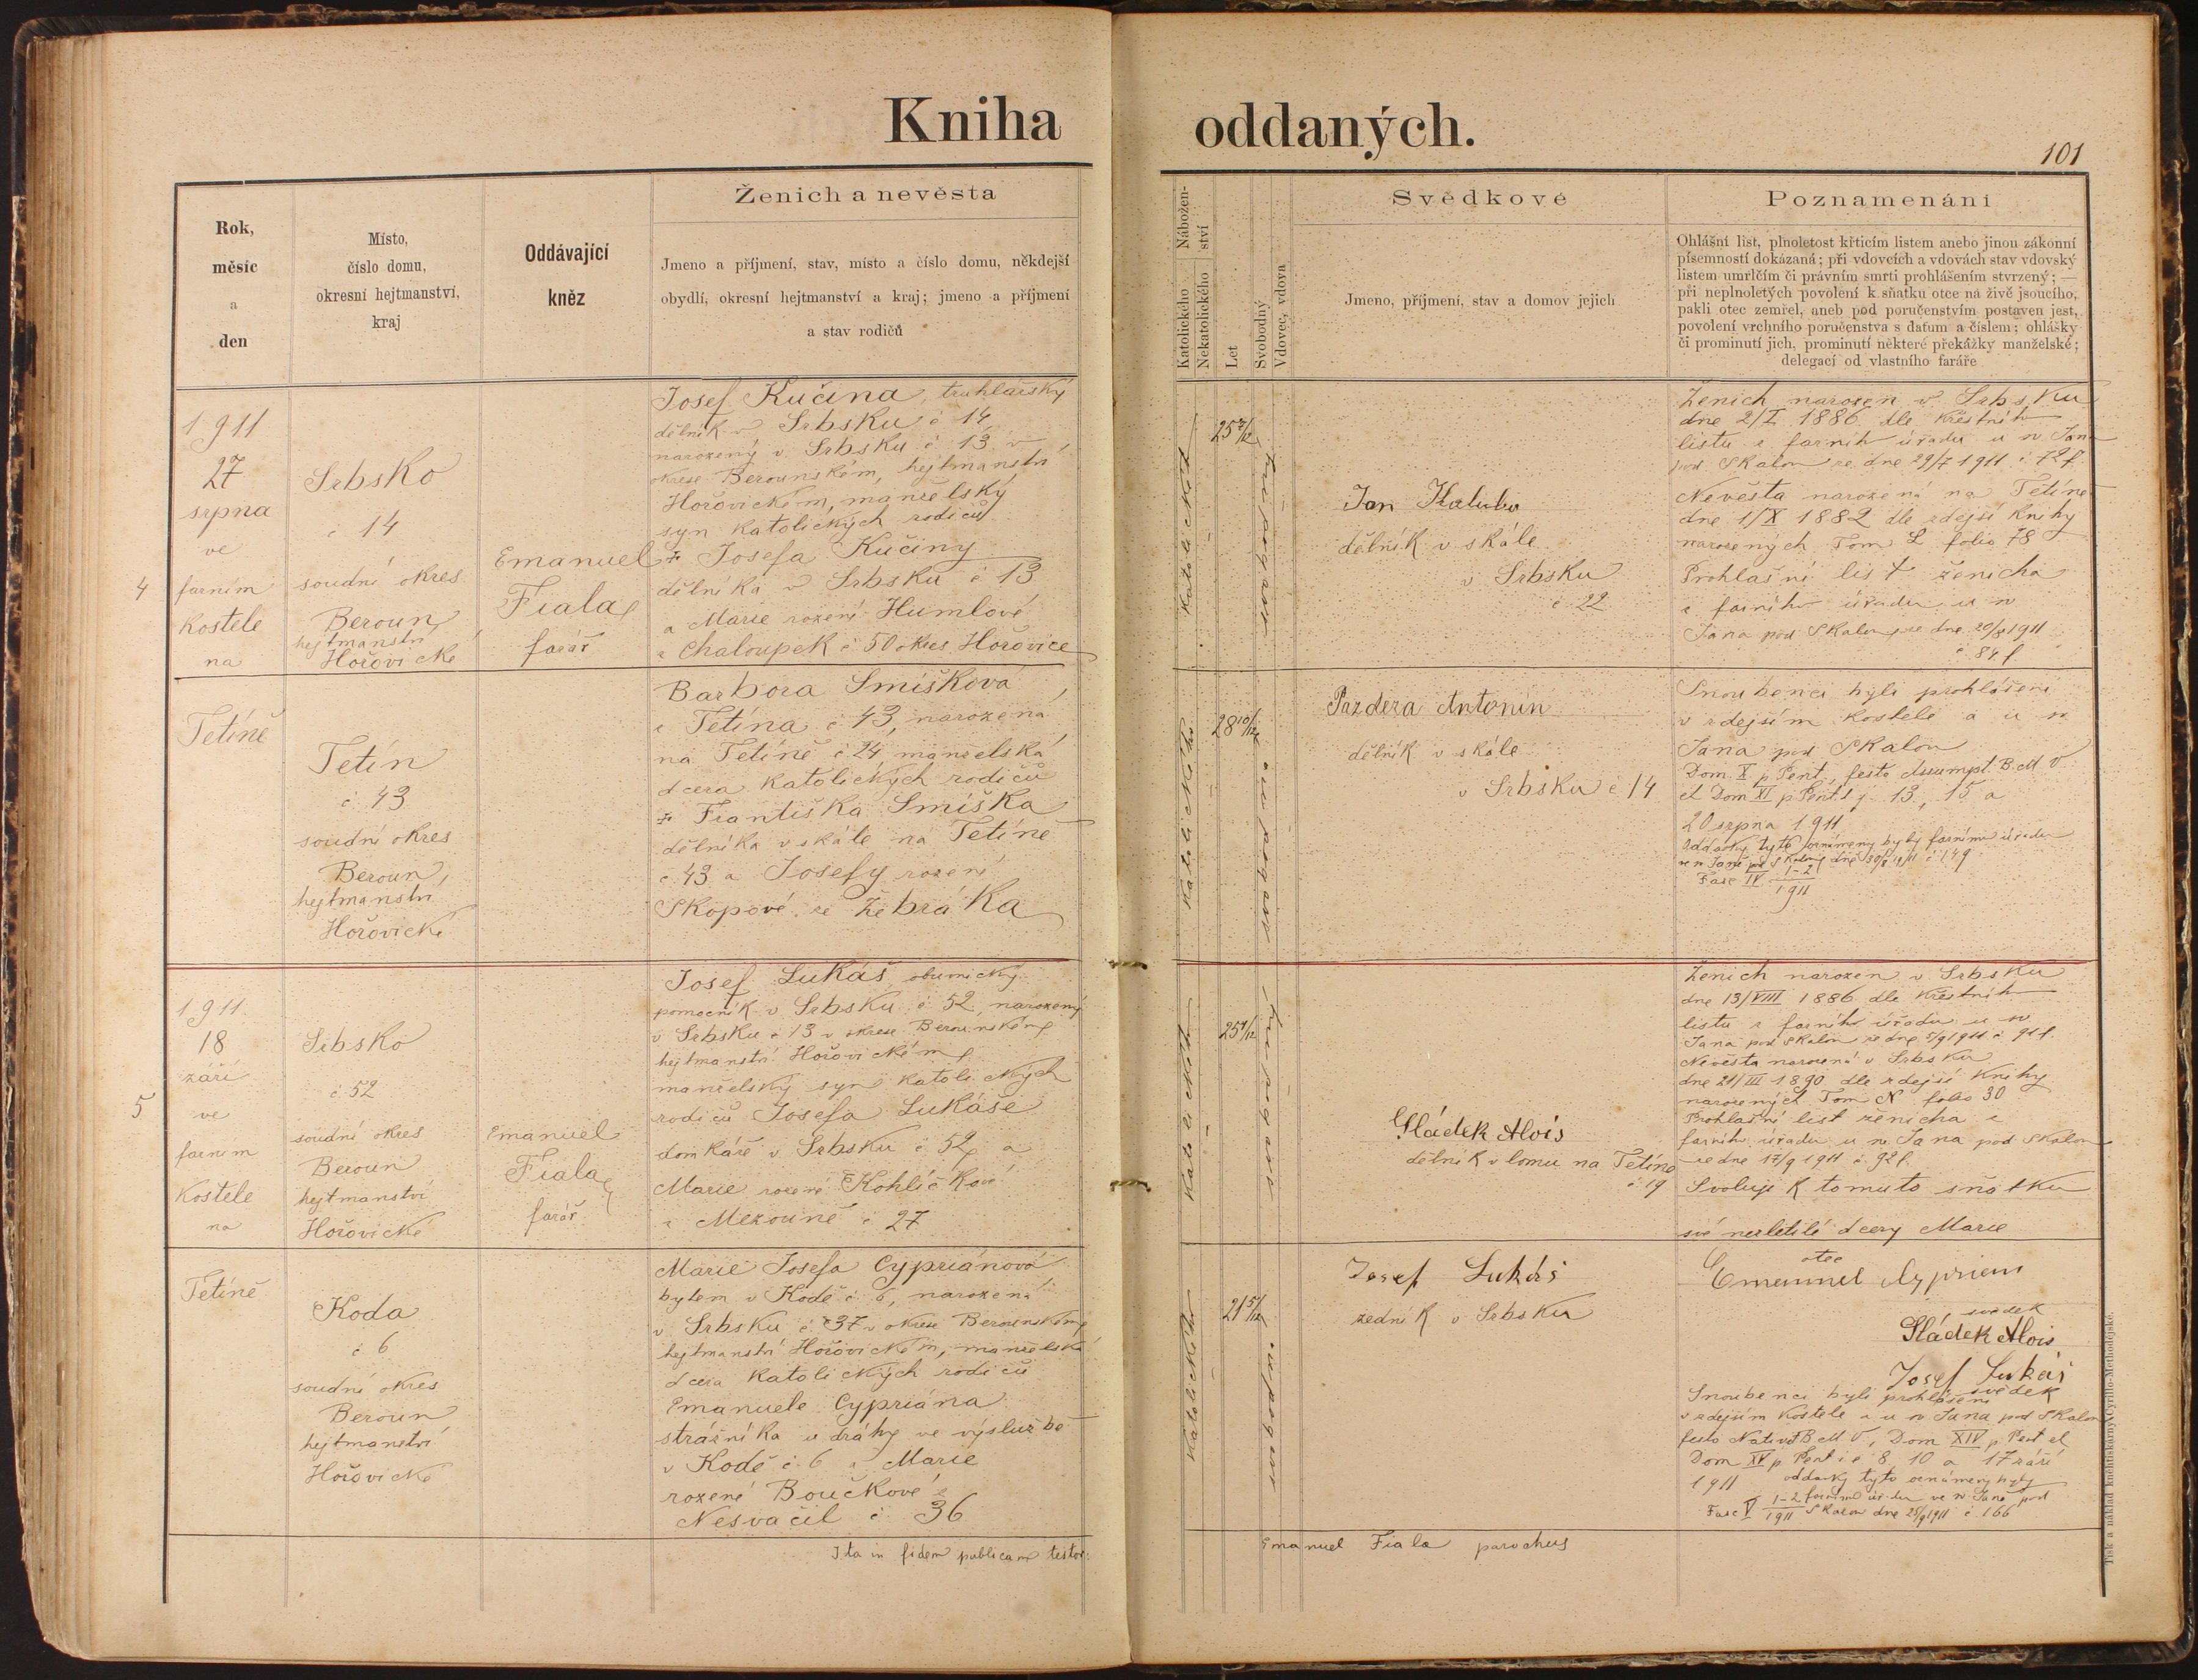 Kniha oddaných.
101
Rok,
měsíc
a
den
Místo,
číslo domu,
okresní hejtmanství,
kraj
Oddávající
kněz
Ženich a nevěsta
Jmeno a příjmení, stav, místo a číslo domu, někdejší
obydlí, okresní hejtmanství a kraj; jmeno a příjmení
a stav rodičů
Nábožen-
ství
Katolického
Nekatolického
Let
Svobodný
Vdovec, vdova
Svědkové
Jmeno, příjmení, stav a domov jejich
Poznamenání
Ohlášní list, plnoletost křticím listem anebo jinou zákonní
písemností dokázaná; při vdovcích a vdovách stav vdovský
listem umrlčím či právním smrti prohlášením stvrzený; —
při neplnoletých povolení k sňatku otce na živě jsoucího,
pakli otec zemřel, aneb pod poručenstvím postaven jest,
povolení vrchního poručenstva s datum a číslem; ohlášky
či prominutí jich, prominutí některé překážky manželské;
delegací od vlastního faráře
4
1911
27
srpna
ve
farním
kostele
na
Tetíně
Srbsko
č 14
soudní okres
Beroun,
hejtmanství
Hořovické
Emanuel
Fiala,
farář
Josef Kučina, truhlářský
dělník v Srbsku č 14,
narozený v Srbsku č 13 v
okrese Berounském, hejtmanství
Hořovickém, manželský
syn katolických rodičů
Josefa Kučiny
dělníka v Srbsku č 13
a Marie rozené Humlové
z Chaloupek č 50 okres Hořovice
katolického
25 7/12
svobodný
Jan Kalubu
dělník v skále
v Srbsku
č 22
Ženich narozen v Srbsku
dne 2/I 1886 dle křestního
listu z farního úřadu u sv Jana
pod Skalou ze dne 29/7 1911 č 72 f.
Nevěsta narozená na Tetíně
dne 1/X 1882 dle zdejší knihy
narozených Tom L folio 78
Prohlašní list ženicha
z farního úřadu u sv
Jana pod Skalou ze dne 20/8 1911
č 84 f.
Tetín
č 43
soudní okres
Beroun,
hejtmanství
Hořovické
Barbora Smíšková,
z Tetína č 43, narozená
na Tetíně č 24, manželská
dcera katolických rodičů
Františka Smíška
dělníka v skále na Tetíně
č 43 a Josefy rozené
Skopové ze Žebráka
katolického
28 10/12
svobodná
Pazdera Antonín
dělník v skále
v Srbsku č 14
Snoubenci byli prohlášeni
v zdejším kostele a u sv
Jana pod Skalou
Dom X p Pent, festo Assumpt. B. M V
et Dom XI p Pent t j 13, 15 a
20 srpna 1911
Oddavky tyto oznámeny byly farnímu úřadu
ve sv Janě pod Skalou dne 30/8 1911 č 149
Fasc IV 1-2/1911
5
1911
18
září
ve
farním
kostele
na
Tetíně
Srbsko
č 52
soudní okres
Beroun
hejtmanství
Hořovické
Emanuel
Fiala,
farář
Josef Lukáš,
pomocník v Srbsku č 52, narozený
v Srbsku č 13 v okrese Berounském,
hejtmanství Hořovickém,
manželský syn katolických
rodičů Josefa Lukáše
domkáře v Srbsku č 52, a
Marie rozené Kohlíčkové
z Mezouně č 27
katolického
25 1/12
svobodný
Sládek Alois
dělník v lomu na Tetíně
č 19
Ženich narozen v Srbsku
dne 13/VIII 1886 dle křestního
listu z farního úřadu u sv
Jana pod Skalou ze dne 5/9 1911 č 91 f.
Nevěsta narozená v Srbsku
dne 21/III 1890 dle zdejší knihy
narozených Tom N folio 30
Prohlašní list ženicha z
farního úřadu u sv Jana pod Skalou
ze dne 17/9 1911 č 92 f.
Svoluji k tomuto sňatku
své nezletilé dcery Marie
otec
Emanuel Cyprian
svědek
Sládek Alois
Josef Lukáš
svědek
Koda
č 6
soudní okres
Beroun
hejtmanství
Hořovické
Marie Josefa Cypriánová
bytem v Kodě č 6, narozená
v Srbsku č 37 v okrese Berounském,
hejtmanství Hořovickém, manželská
dcera katolických rodičů
Emanuele Cypriána
strážníka u dráhy ve výslužbě
v Kodě č 6 a Marie
rozené Boučkové z
Nesvačil č 36
katolického
21 5/12
svobodná
Josef Lukáš
zedník v Srbsku
Snoubenci byli prohlášeni
v zdejším kostele a u sv Jana pod Skalou
festo Nativit B M V, Dom XIV p Pent et
Dom XV p Pent i e 8, 10 a 17 září
1911 oddavky tyto oznámeny byly
farnímu úřadu ve sv Janě pod
Fasc V 1-2/1911 Skalou dne 25/9 1911 č 166
Ita in fidem publicam testor:
Emanuel Fiala parochus
Tisk a náklad knihtiskárny Cyrillo-Methodějské.